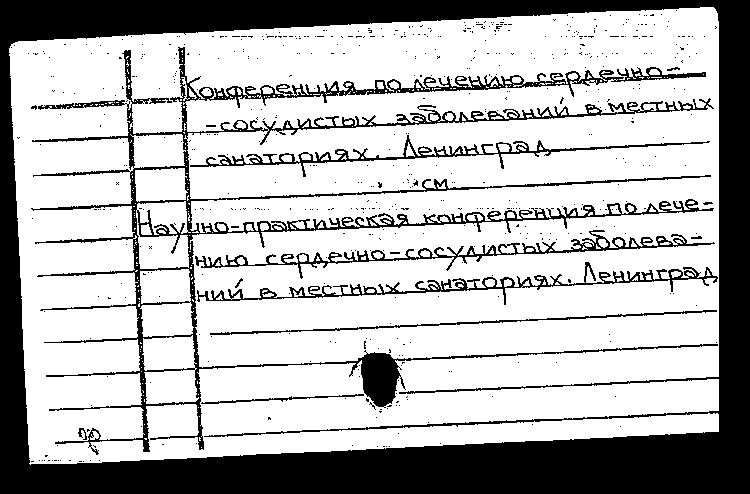 Конференция по лечению сердечно-
-сосудистых заболеваний в местных
санаториях. Ленинград
см.
Научно-практическая конференция по лече-
нию сердечно-сосудистых заболева-
ний в местных санаториях. Ленинград